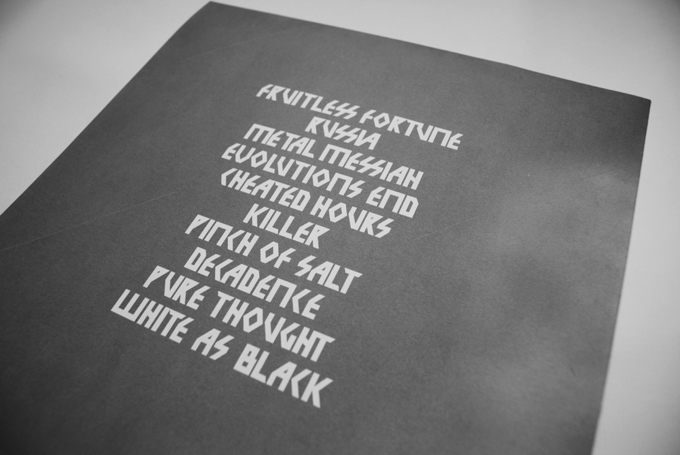 FRUITLESS FORTUNE
RUSSIA
METAL MESSIAH
EVOLUTIONS END
CHEATED HOURS
KILLER
PINCH OF SALT
DECADENCE
PURE THOUGHT
WHITE AS BLACK